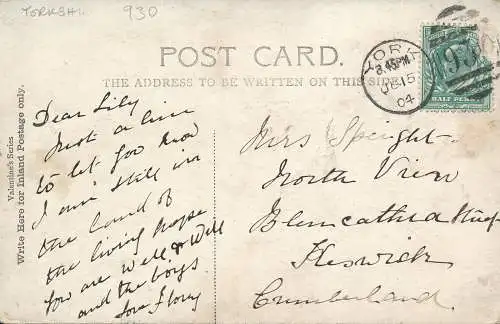 YORKSHI.
930
POST CARD.
THE ADDRESS TO BE WRITTEN ON THIS SIDE
YORK
8.45PM
JL 15
04
930
HALF PENNY
Valentine's Series
Write Here for Inland Postage only.
Dear Lily
Just a line
to let you know
I am still in
the land of
the living hope
you are well & Will
and the boys
love Florry
Mrs Speight
North View
Blencathra
Keswick
Cumberland.